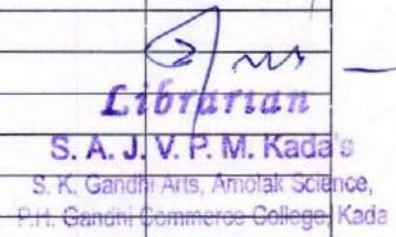 Librarian
S. A. J. V. P. M. Kada's
S. K. Gandhi Arts, Amolak Science,
P.H. Gandhi Commerce College, Kada